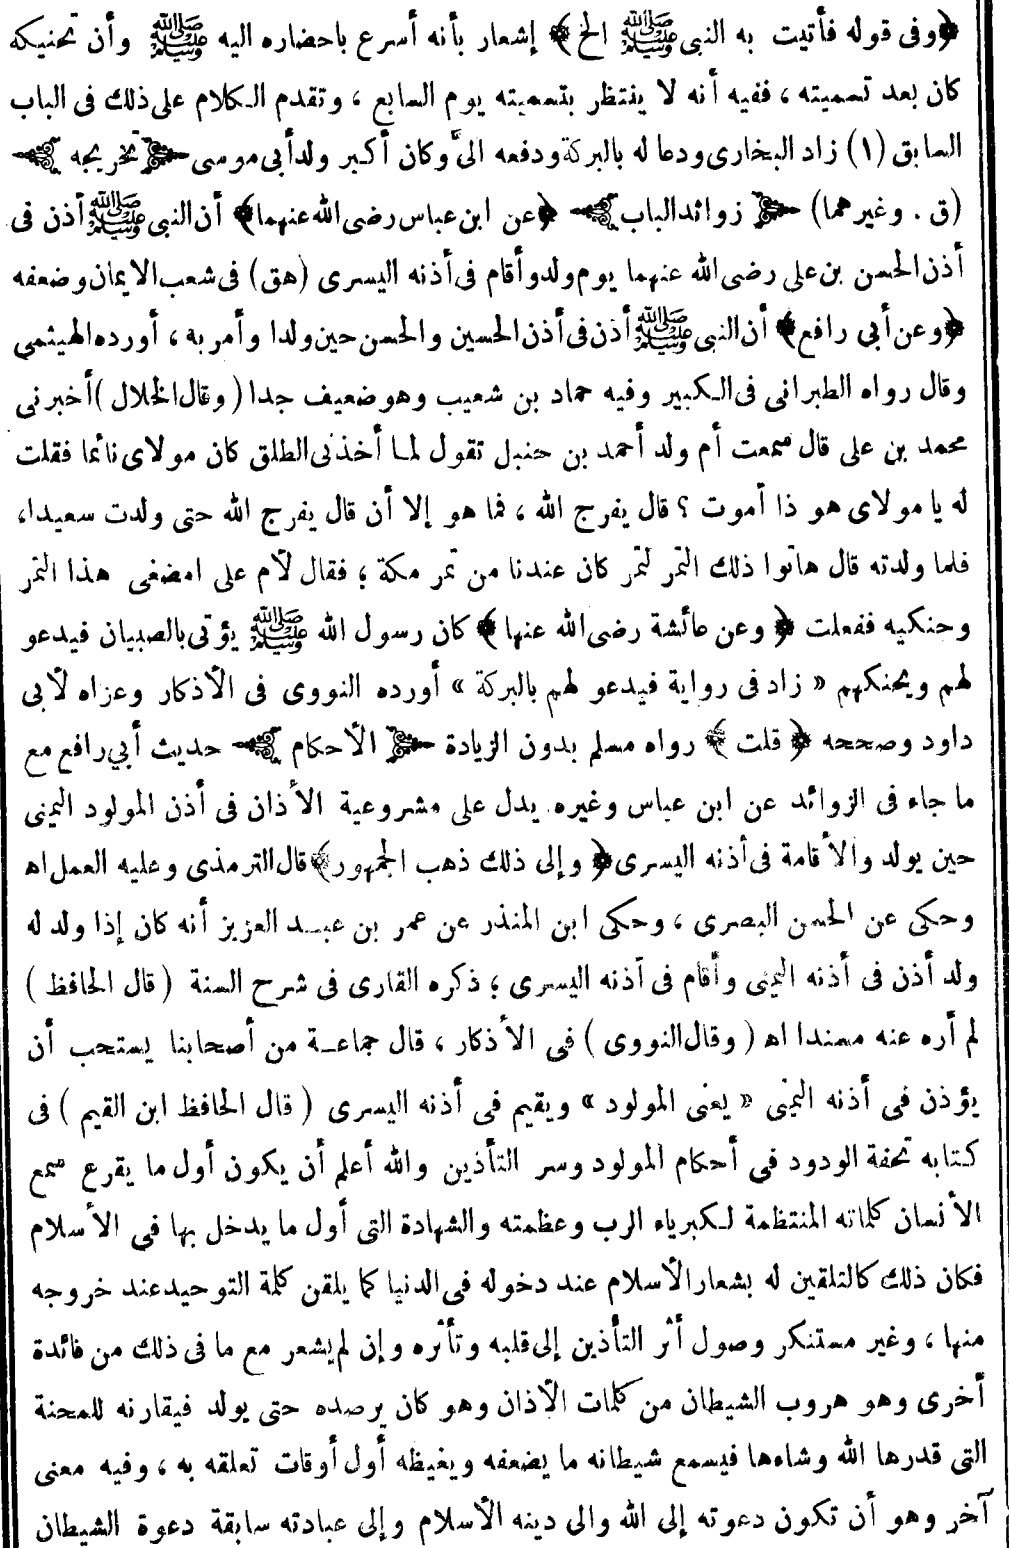 ﴿وفى قوله فأتيت به النبى ﷺ الخ﴾ إشعار بأنه أسرع باحضاره اليه ﷺ وأن تحنيكه
كان بعد تسميته ، ففيه أنه لا ينتظر بتسميته يوم السابع ، وتقدم الكلام على ذلك فى الباب
السابق (١) زاد البخارى ودعا له بالبركة ودفعه الىَّ وكان أكبر ولد أبى موسى ﴿تخريجه﴾
(ق . وغيرهما) ﴿زوائد الباب﴾ ﴿عن ابن عباس رضى الله عنهما﴾ أن النبى ﷺ أذن فى
أذن الحسن بن على رضى الله عنهما يوم ولد وأقام فى أذنه اليسرى (هق) فى شعب الايمان وضعفه
﴿وعن أبى رافع﴾ أن النبى ﷺ أذن فى أذن الحسين والحسن حين ولدا وأمر به ، أورده الهيثمى
وقال رواه الطبرانى فى الكبير وفيه حماد بن شعيب وهو ضعيف جدا (وقال الخلال) أخبرنى
محمد بن على قال سمعت أم ولد أحمد بن حنبل تقول لما أخذنى الطلق كان مولاى نائما فقلت
له يا مولاى هو ذا أموت ؟ قال يفرج الله ، فما هو إلا أن قال يفرج الله حتى ولدت سعيدا،
فلما ولدته قال هاتوا ذلك التمر لتمر كان عندنا من تمر مكة ؛ فقال لأم على امضغى هذا التمر
وحنكيه ففعلت ﴿وعن عائشة رضى الله عنها﴾ كان رسول الله ﷺ يؤتى بالصبيان فيدعو
لهم ويحنكهم « زاد فى رواية فيدعو لهم بالبركة » أورده النووى فى الأذكار وعزاه لأبى
داود وصححه ﴿قلت﴾ رواه مسلم بدون الزيادة ﴿الأحكام﴾ حديث أبي رافع مع
ما جاء فى الزوائد عن ابن عباس وغيره يدل على مشروعية الأذان فى أذن المولود اليمنى
حين يولد والأقامة فى أذنه اليسرى ﴿وإلى ذلك ذهب الجمهور﴾ قال الترمذى وعليه العمل اه
وحكى عن الحسن البصرى ، وحكى ابن المنذر عن عمر بن عبد العزيز أنه كان إذا ولد له
ولد أذن فى أذنه اليمنى وأقام فى أذنه اليسرى ؛ ذكره القارى فى شرح السنة (قال الحافظ )
لم أره عنه مسندا اه (وقال النووى ) فى الأذكار ، قال جماعة من أصحابنا يستحب أن
يؤذن فى أذنه اليمنى « يعنى المولود » ويقيم فى أذنه اليسرى ( قال الحافظ ابن القيم ) فى
كتابه تحفة الودود فى أحكام المولود وسر التأذين والله أعلم أن يكون أول ما يقرع سمع
الأنسان كلماته المنتظمة لكبرياء الرب وعظمته والشهادة التى أول ما يدخل بها فى الأسلام
فكان ذلك كالتلقين له بشعار الأسلام عند دخوله فى الدنيا كما يلقن كلمة التوحيد عند خروجه
منها ، وغير مستنكر وصول أثر التأذين إلى قلبه وتأثره وإن لم يشعر مع ما فى ذلك من فائدة
أخرى وهو هروب الشيطان من كلمات الأذان وهو كان يرصده حتى يولد فيقارنه للمحنة
التى قدرها الله وشاءها فيسمع شيطانه ما يضعفه ويغيظه أول أوقات تعلقه به ، وفيه معنى
آخر وهو أن تكون دعوته إلى الله والى دينه الأسلام وإلى عبادته سابقة دعوة الشيطان